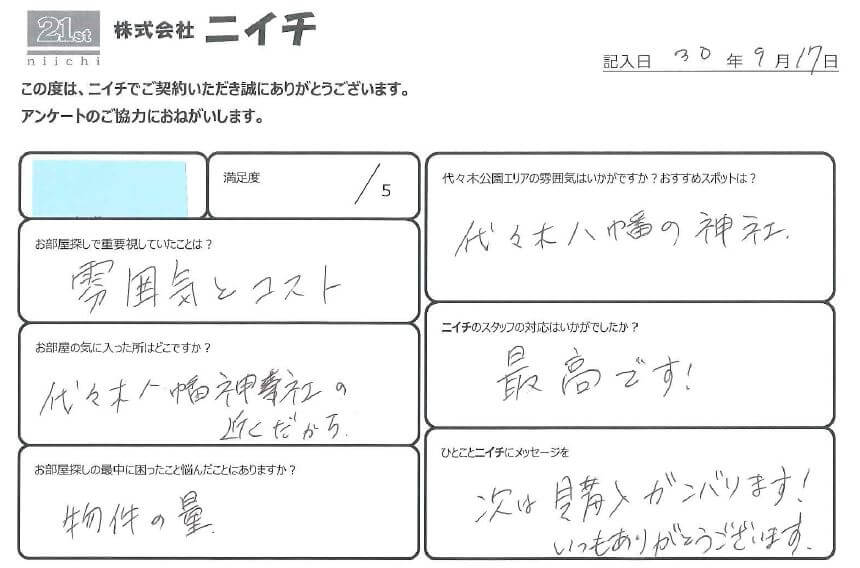 21st
niichi
株式会社 ニイチ
記入日 30 年 9 月 17 日
この度は、ニイチでご契約いただき誠にありがとうございます。
アンケートのご協力におねがいします。
満足度
/5
お部屋探しで重要視していたことは？
雰囲気とコスト
お部屋の気に入った所はどこですか？
代々木八幡神社の
近くだから.
お部屋探しの最中に困ったこと悩んだことはありますか？
物件の量.
代々木公園エリアの雰囲気はいかがですか？おすすめスポットは？
代々木八幡の神社.
ニイチのスタッフの対応はいかがでしたか？
最高です!
ひとことニイチにメッセージを
次は購入ガンバります!
いつもありがとうございます.